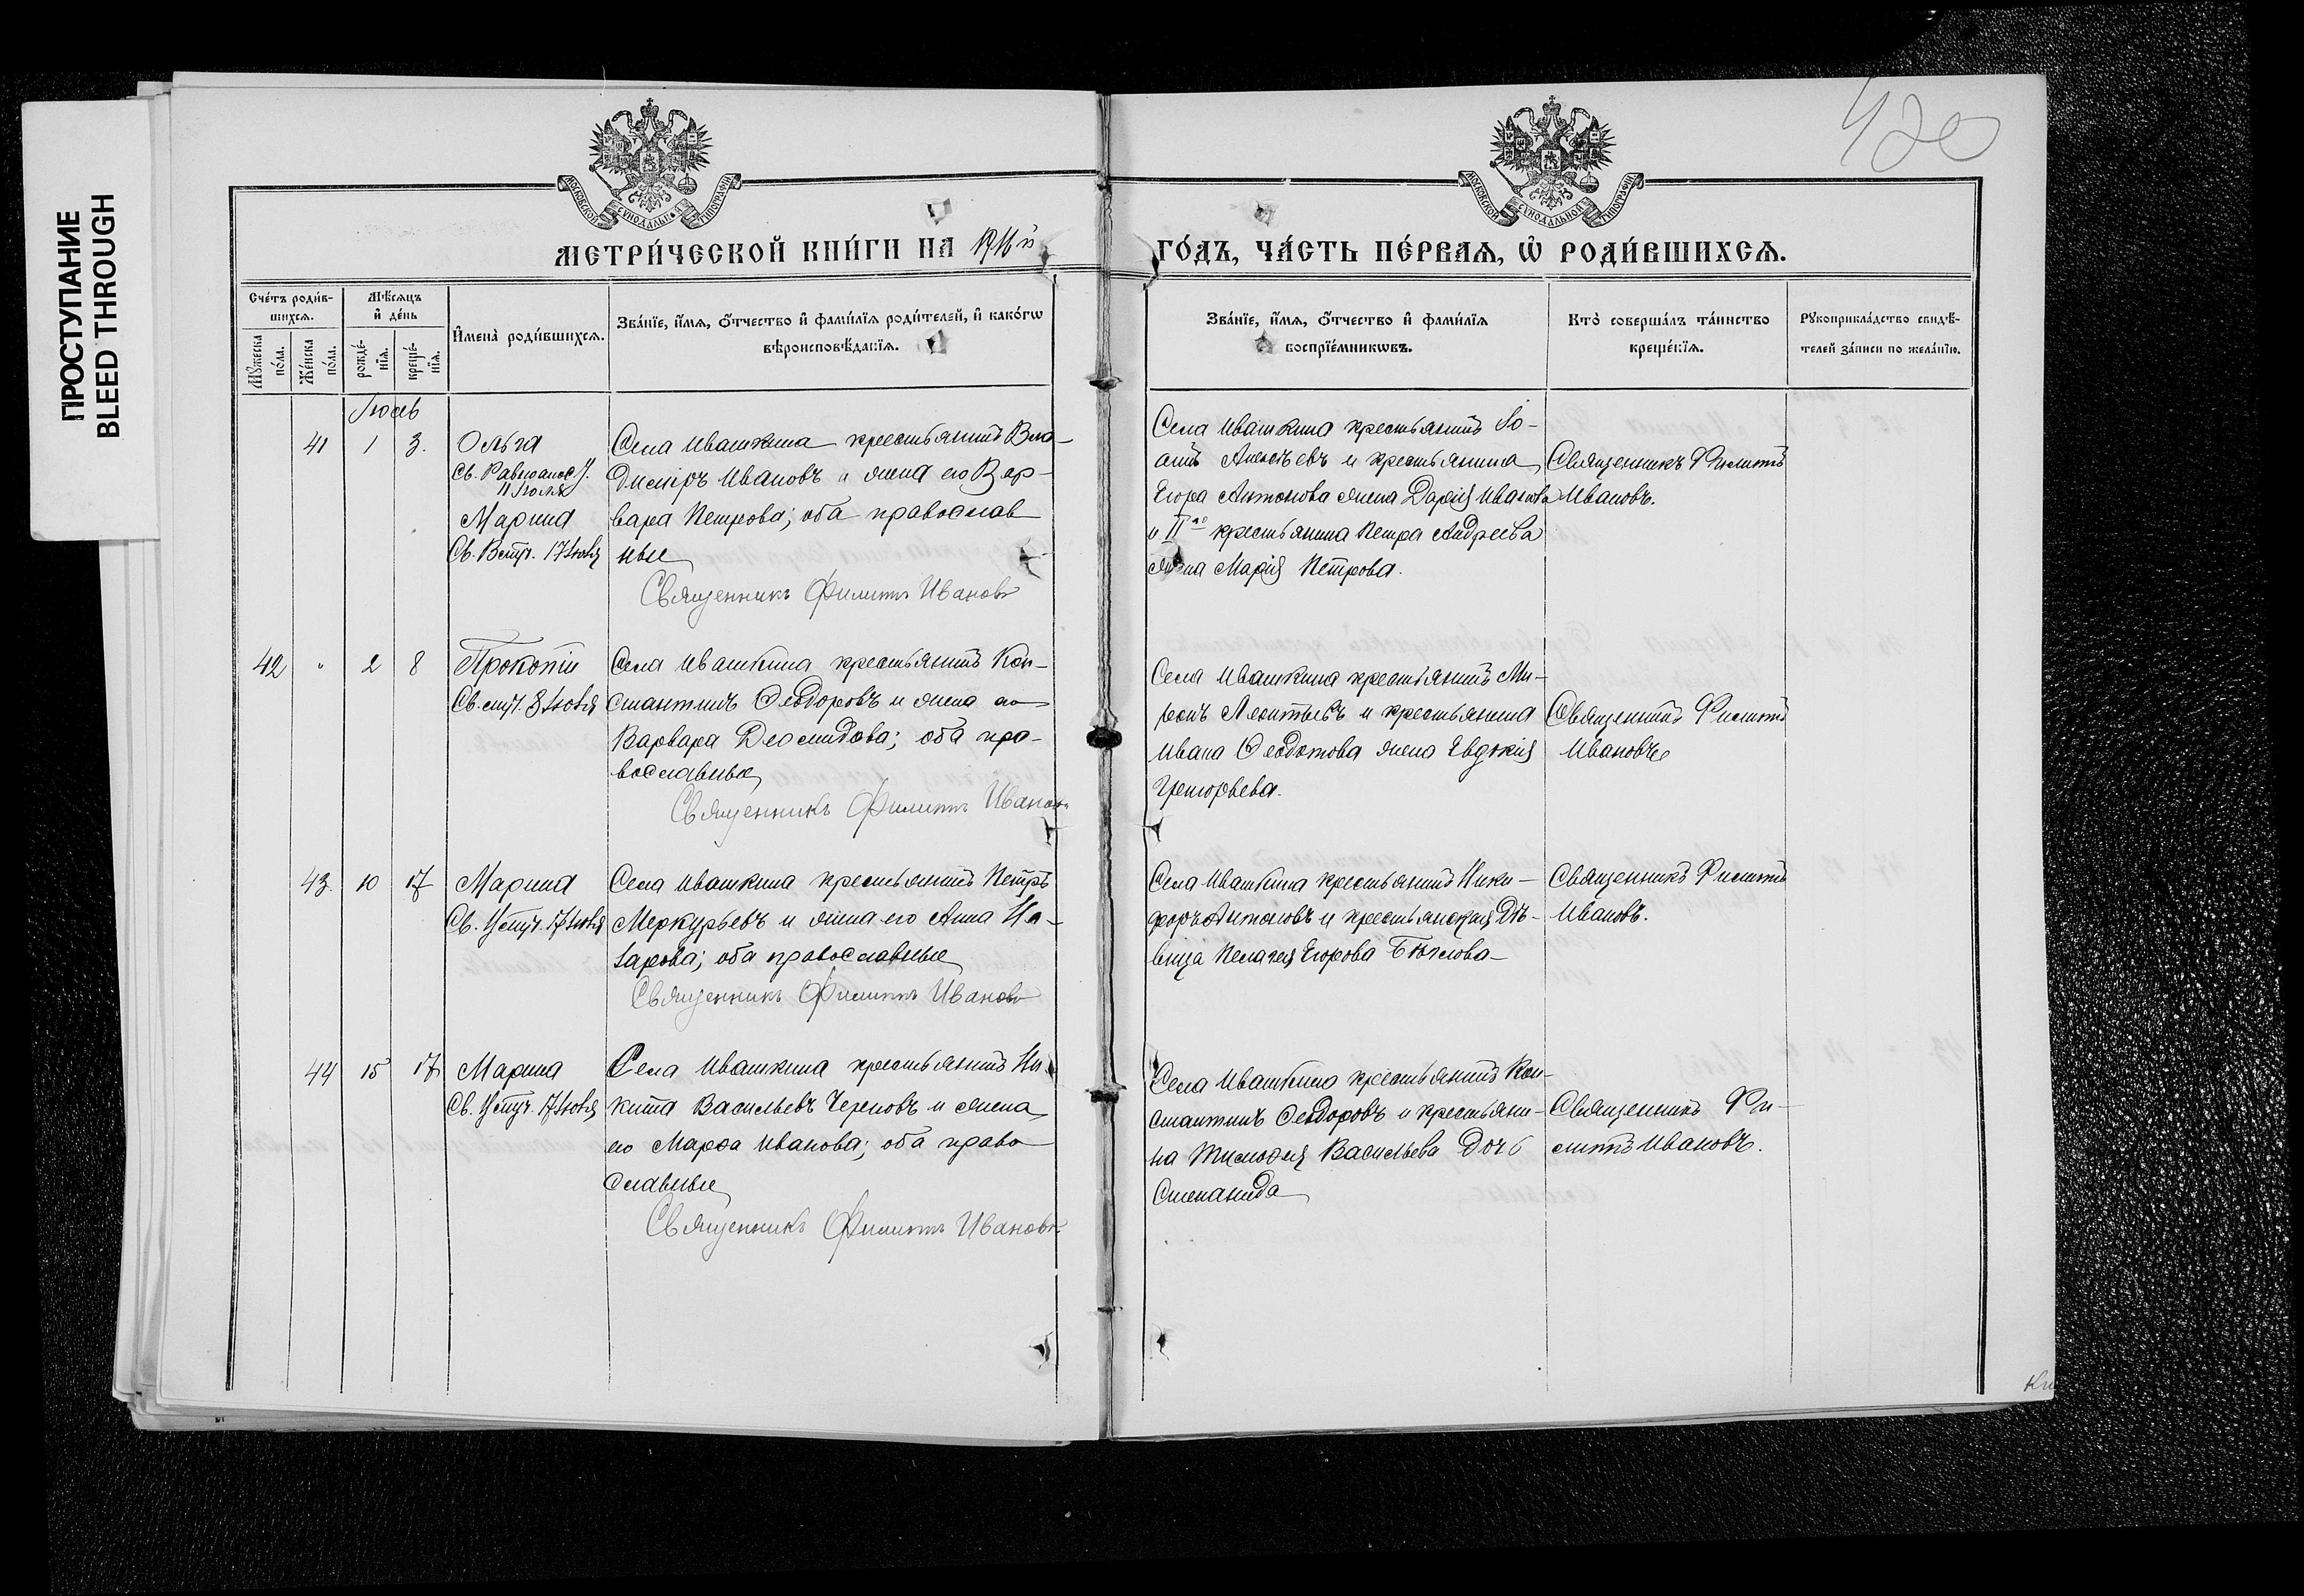 ПРОСТУПАНИЕ
BLEED THROUGH
420
МОСКОВСКОЙ СѴНОДАЛЬНОЙ ТИПОГРАФІИ
МОСКОВСКОЙ СѴНОДАЛЬНОЙ ТИПОГРАФІИ
МЕТРИ́ЧЕСКОЙ КНИ́ГИ НА 1916й
ГО́ДЪ, ЧА́СТЬ ПЕ́РВАЯ, Ѡ РОДИ́ВШИХСЯ.
Сче́тъ роди́в-
шихся.
Мѣ́сяцъ
и де́нь
Му́жеска
по́ла.
Же́нска
по́ла.
рожде́-
нїя.
креще́-
нїя.
Имена̀ роди́вшихся.
Зва́нїе, и́мя, о́тчество и фами́лїя роди́телей, и како́гѡ
вѣроисповѣ́данїя.
Зва́нїе, и́мя, о́тчество и фами́лїя
воспрїе́мникѡвъ.
Кто̀ соверша́лъ та́инство
креще́нїя.
Рукоприкла́дство свидѣ́-
телей за́писи по жела́нїю.
Іюль
41 1 3. Ольга
Св. Равноапос.
11 Іюля
Марина
17 Іюля
Села Ивашкина крестьянинъ Вла-
димiръ Ивановъ и жена его Вар-
вара Петрова; оба православ
ные
Священникъ Филиппъ Ивановъ
Села Ивашкина крестьянинъ Iо-
аннъ Алексѣевъ и крестьянина
Егора Антонова жена Дарія Иванова
и IIго крестьянина Петра Андреева
жена Марія Петрова.
Священникъ Филиппъ
Ивановъ.
42 " 2 8 Прокопій
Св. муч. 8 Іюля
Села Ивашкина крестьянинъ Кон-
стантинъ Ѳеодоровъ и жена его
Варвара Деомидова; оба пра-
вославные
Священникъ Филиппъ Ивановъ
Села Ивашкина крестьянинъ Ми-
ронъ Леонтьевъ и крестьянина
Ивана Ѳеодотова жена Евдокія
Григорьева.
Священникъ Филиппъ
Ивановъ
43. 10 17 Марина
Св. муч. 17 Іюля
Села Ивашкина крестьянинъ Петръ
Меркурьевъ и жена его Анна На-
зарова; оба православные
Священникъ Филиппъ Ивановъ
Села Ивашкина крестьянинъ Ники-
форъ Антоновъ и крестьянская дѣ-
вица Пелагея Егорова
Священникъ Филиппъ
Ивановъ.
44 15 17 Марина
Св. муч. 17 Іюля
Села Ивашкина крестьянинъ Ни-
кита Васильевъ Черновъ и жена
его Марѳа Иванова; оба право
славные
Священникъ Филиппъ Ивановъ
Села Ивашкино крестьянинъ Кон-
стантинъ Ѳеодоровъ и крестьяни-
на Тимоѳея Васильева дочь
Степанида
Священникъ Фи-
липпъ Ивановъ.